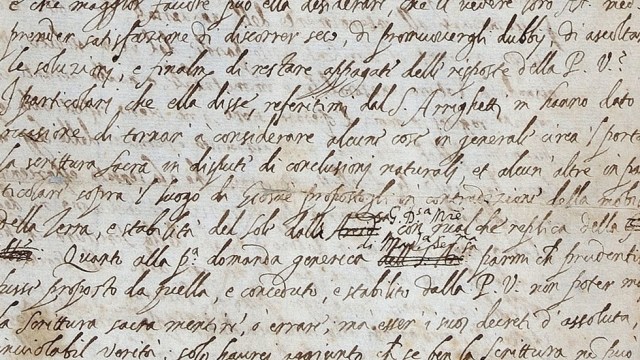 e che maggior favore può ella desiderare che il vedere loro
prender satisfazione di discorrer seco, di promuovergli dubbij, di ascoltar
le soluzioni, e finalm. di restare appagati delle risposte della P. V.?
I particolari che ella disse referitimi dal S. Arrighetti m hanno dato
di tornar à considerare alcune cose in generale circa 'l portar
la scrittura sacra in dispute di conclusioni naturali, et alcun'altre in
ticolari sopra 'l luogo di propostogli in contradizione della mobi
della Terra, e stabilità del Sole dalla con qualche replica della
Quanto alla pª. domanda generica parmi ch prudentis
fusse proposto da quella, e conceduto, e stabilito dalla P. V. non poter mai
la Scrittura sacra mentire, ò errare, ma esser i suoi decreti d'assoluta
inviolabil verità: solo haurei aggiunto, ch se ben la Scrittura